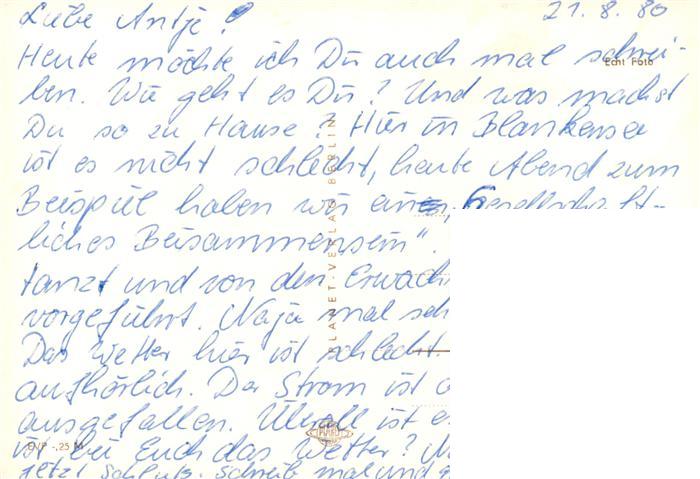 Liebe Antje! 21.8.80
Heute möchte ich Dir auch mal schrei-
Echt Foto
ben. Wie geht es Dir? Und was machst
Du so zu Hause? Hier in Blankensee
ist es nicht schlecht, heute Abend zum
Beispiel haben wir ein „Gesellschaft-
liches Beisammensein".
tanzt und von den Erwach
vorgeführt. Naja mal seh
Das Wetter hier ist schlecht.
aufhörlich. Der Strom ist
ausgefallen. Überall ist
ist bei Euch das Wetter?
jetzt Schluß. Schreib mal und
PLANET-VERLAG BERLIN
EVP -,25 M